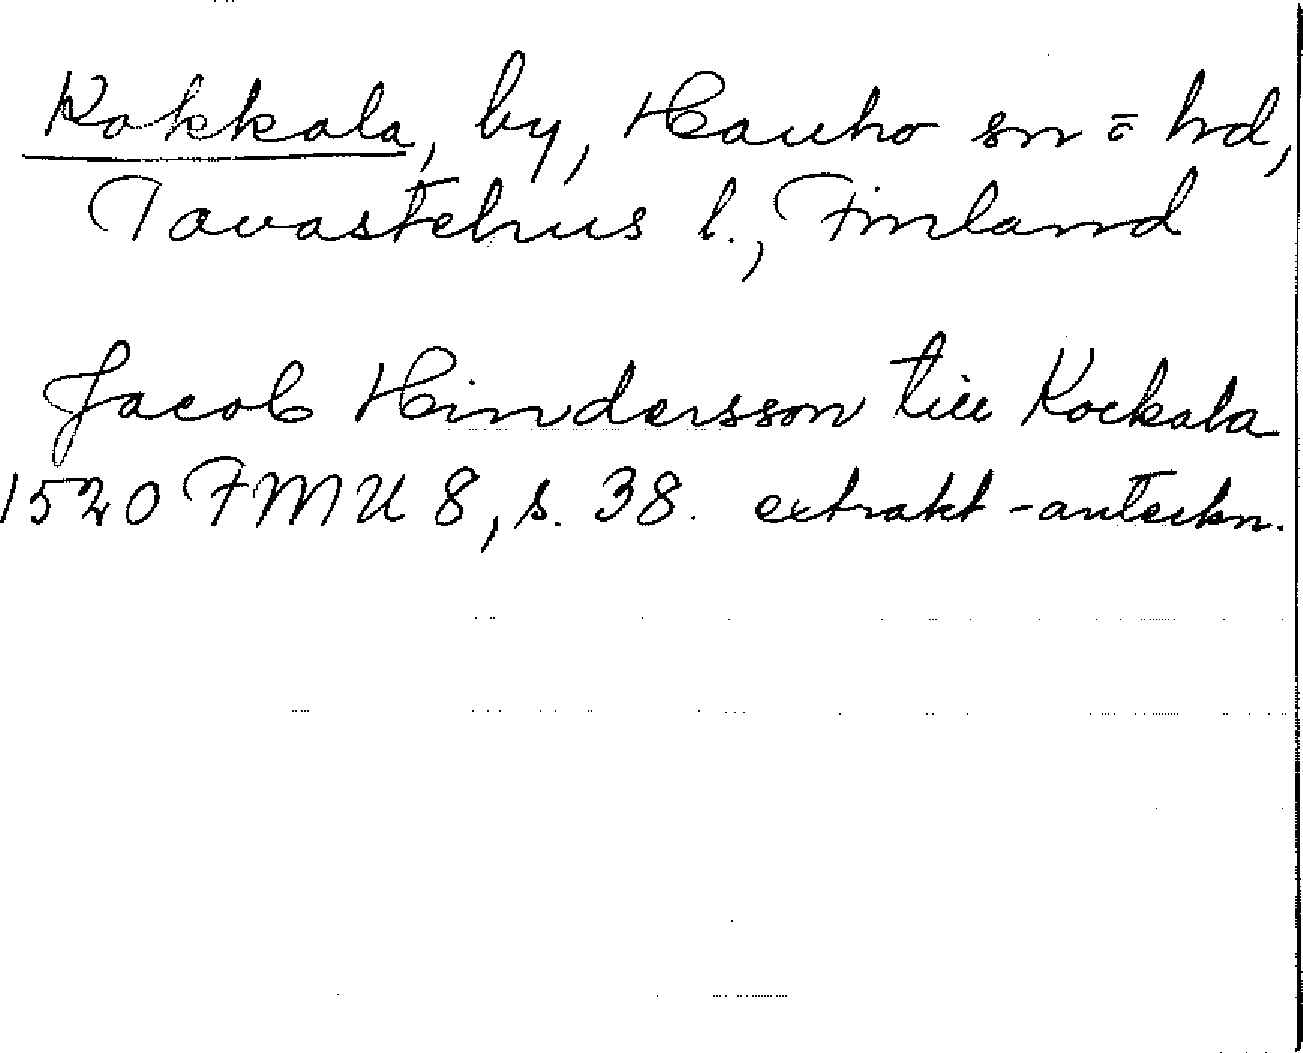 Kokkala, by, Hauho sn o hd,
Tavastehus l., Finland
Jacob Hindersson till Kockala
1520 FMU 8, s. 38. extrakt-anteckn.